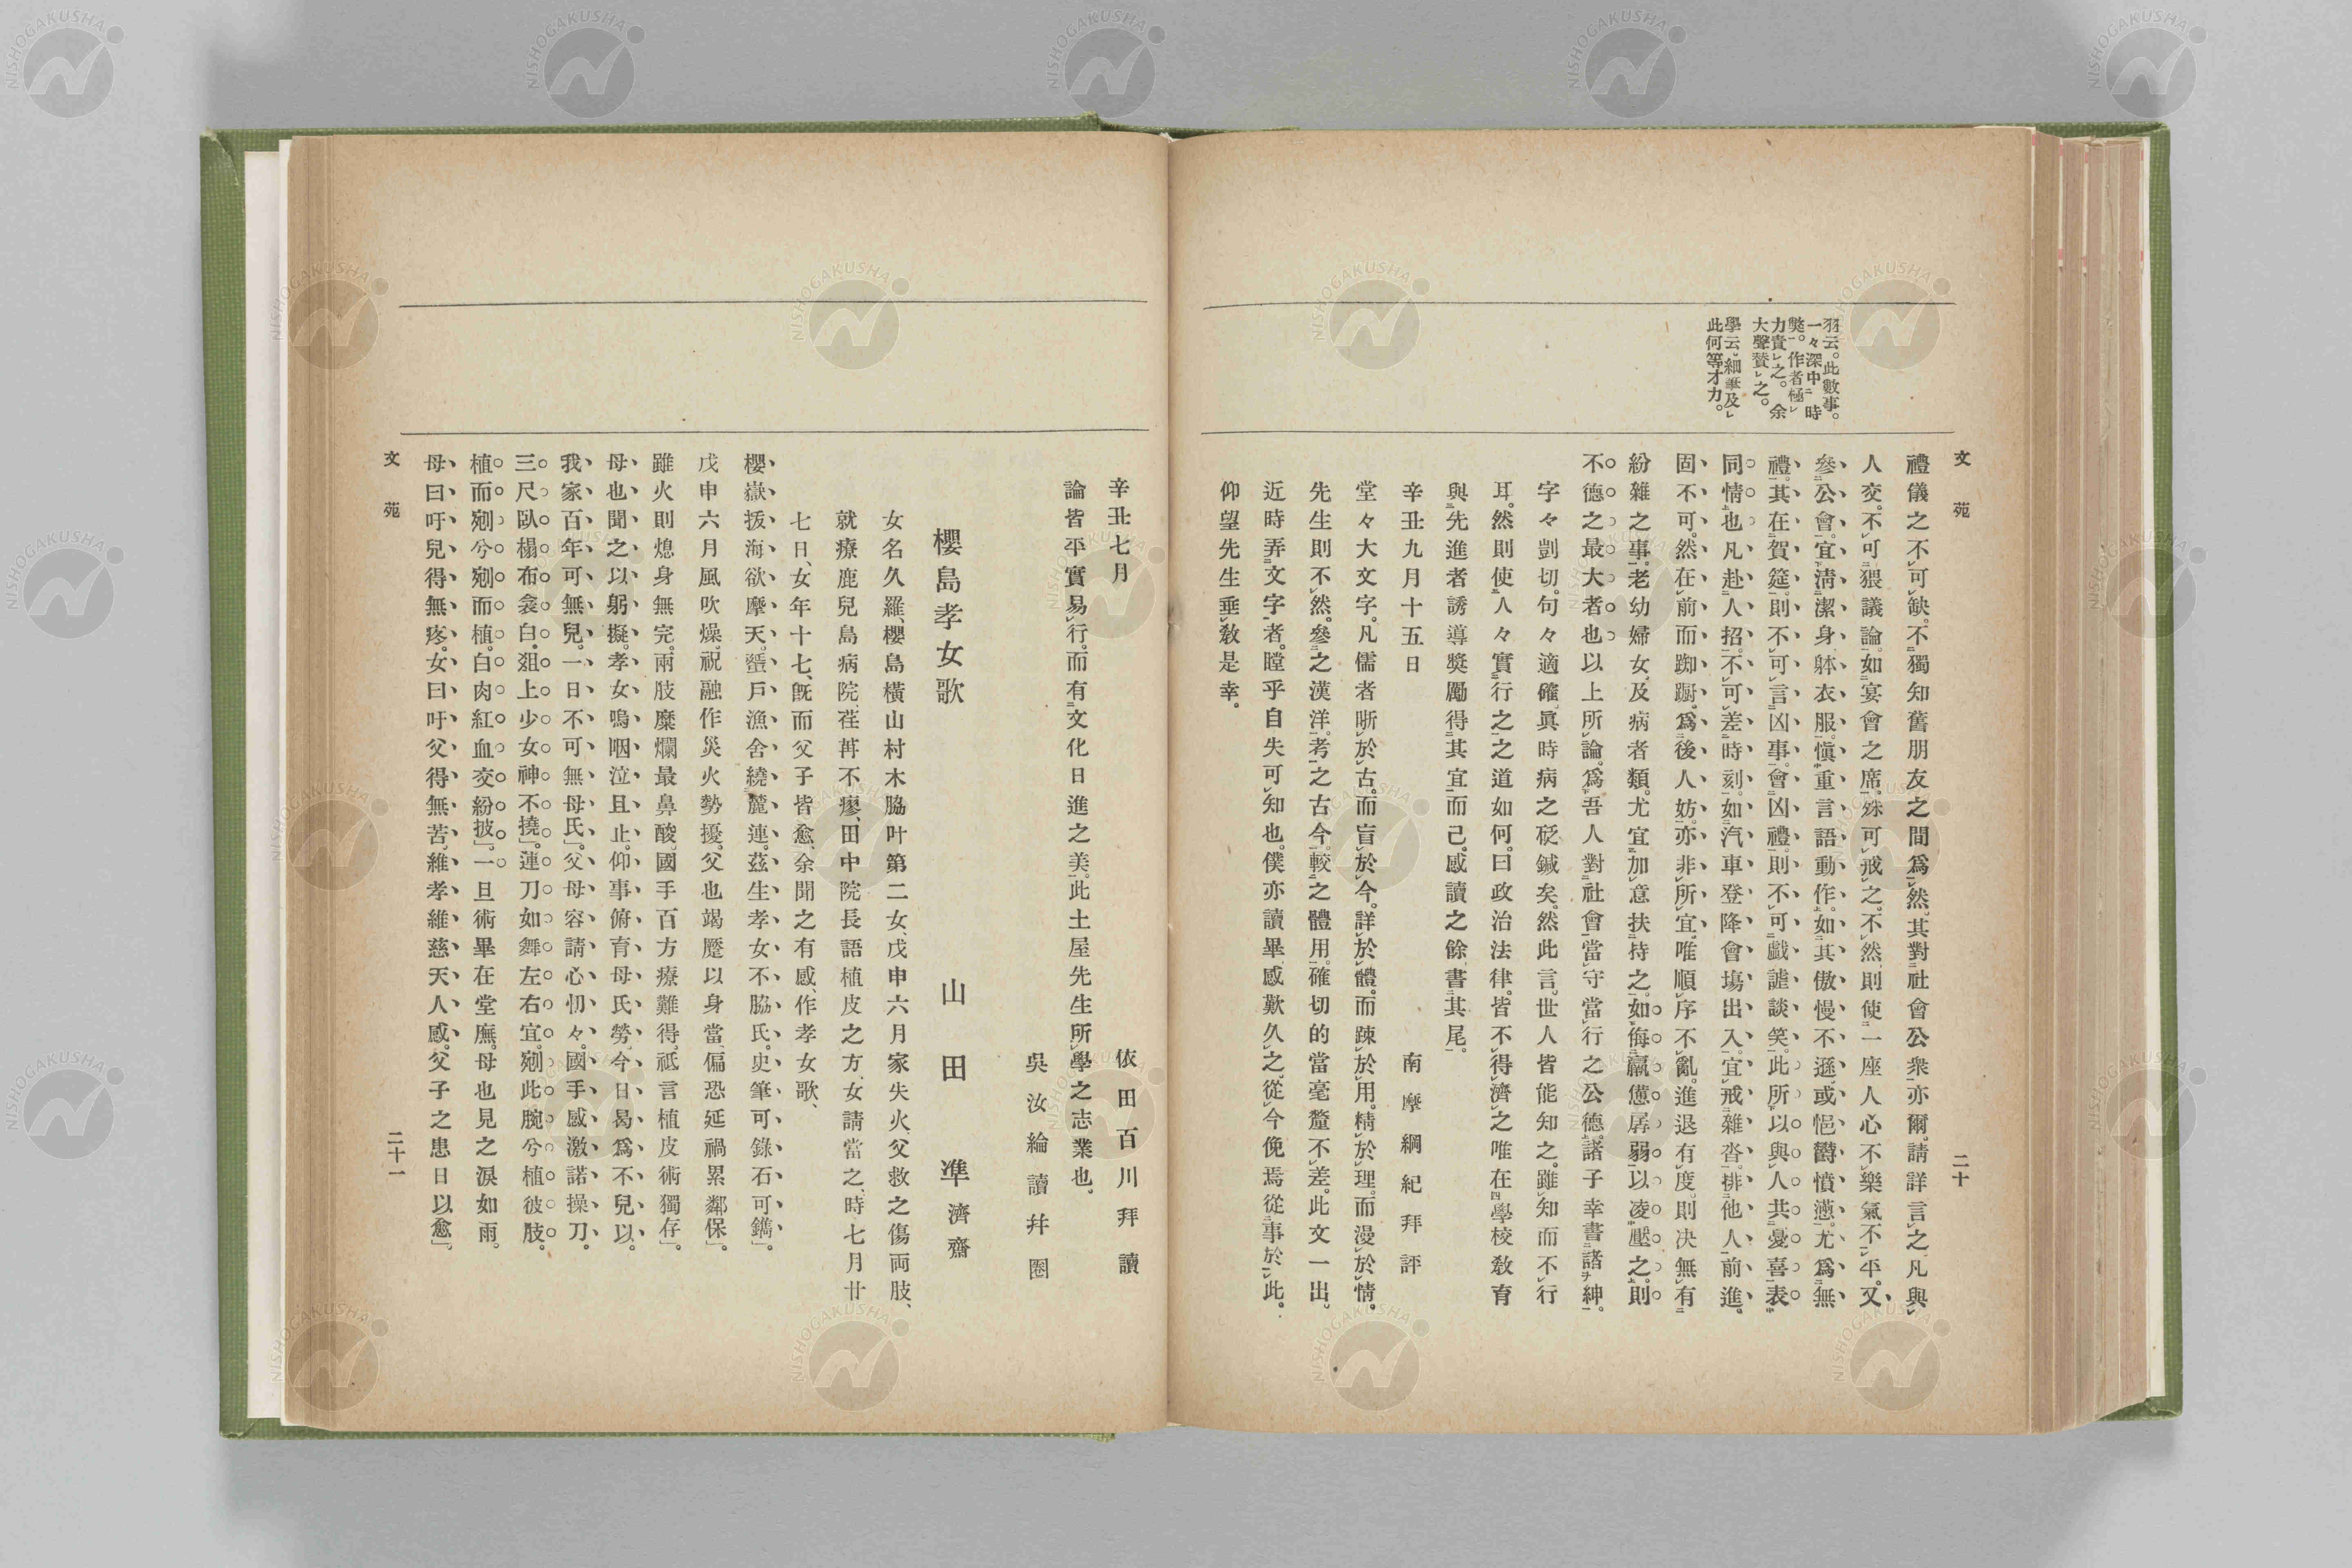 文苑
二十
羽云。此數事。
一々深中時
獘。作者極
力責之。余
大聲賛之。
學云。細筆及
此何等才力。
禮儀之不可缺。不獨知舊朋友之間爲然。其對社會公衆亦爾。請詳言之。凡與
人交。不可猥議論。如宴會之席。殊可戒之。不然則使一座人心不樂氣不平。又
參公會。宜淸潔身躰衣服。愼重言語動作。如其傲慢不遜。或悒鬱憤懣。尤爲無
禮。其在賀筵。則不可言凶事。會凶禮。則不可戯謔談笑。此所以與人共憂喜表
同情也。凡赴人招。不可差時刻。如汽車登降會塲出入。宜戒雜沓。排他人前進。
固不可。然在前而踟蹰。爲後人妨。亦非所宜。唯順序不亂。進退有度。則決無有
紛雜之事。老幼婦女、及病者類。尤宜加意扶持之。如侮羸憊孱弱以凌壓之。則
不德之最大者也。以上所論。爲吾人對社會當守當行之公德。諸子幸書諸紳。
字々剴切。句々適確。眞時病之砭鍼矣。然此言。世人皆能知之。雖知而不行
耳。然則使人々實行之之道如何。曰政治法律。皆不得濟之唯在學校敎育
與先進者誘導奬勵得其宜而己。感讀之餘。書其尾。
辛丑九月十五日 南摩綱紀拜評
堂々大文字。凡儒者晣於古。而盲於今。詳於體。而踈於用。精於理。而漫於情。
先生則不然。參之漢洋。考之古今。較之體用。確切的當毫釐不差。此文一出。
近時弄文字者。瞠乎自失可知也。僕亦讀畢感歎久之。從今俛焉從事於此。
仰望先生垂敎是幸。
辛丑七月 依田百川拜讀
論皆平實易行。而有文化日進之美。此土屋先生所學之志業也。
吳汝綸讀幷圈
櫻島孝女歌 山田凖濟齋
女名久羅、櫻島橫山村木脇叶第二女、戊申六月家失火、父救之傷両肢、
就療鹿兒島病院、荏苒不瘳、田中院長語植皮之方、女請當之、時七月廿
七日、女年十七、旣而父子皆愈、余聞之有感、作孝女歌、
櫻嶽拔海欲摩天。蜑戶漁舍繞麓連。茲生孝女不脇氏。史筆可錄石可鐫」。
戊申六月風吹燥。祝融作災火勢擾。父也竭蹷以身當、偏恐延禍累鄰保」。
雖火則熄身無完。兩肢糜爛最鼻酸。國手百方療難得。祗言植皮術獨存」。
母也聞之以躬擬。孝女嗚咽泣且止。仰事俯育母氏勞。今日曷爲不兒以。
我家百年可無兒。一日不可無母氏」。父母容請心忉々。國手感激諾操刀。
三尺臥榻布衾白。爼上少女神不撓」。蓮刀如舞左右宜。剜此腕兮植彼肢。
植而剜兮剜而植。白肉紅血交紛披」。一旦術畢在堂廡。母也見之淚如雨。
母曰吁兒得無疼。女曰吁父得無苦。維孝維慈天人感。父子之患日以愈」。
文苑
二十一